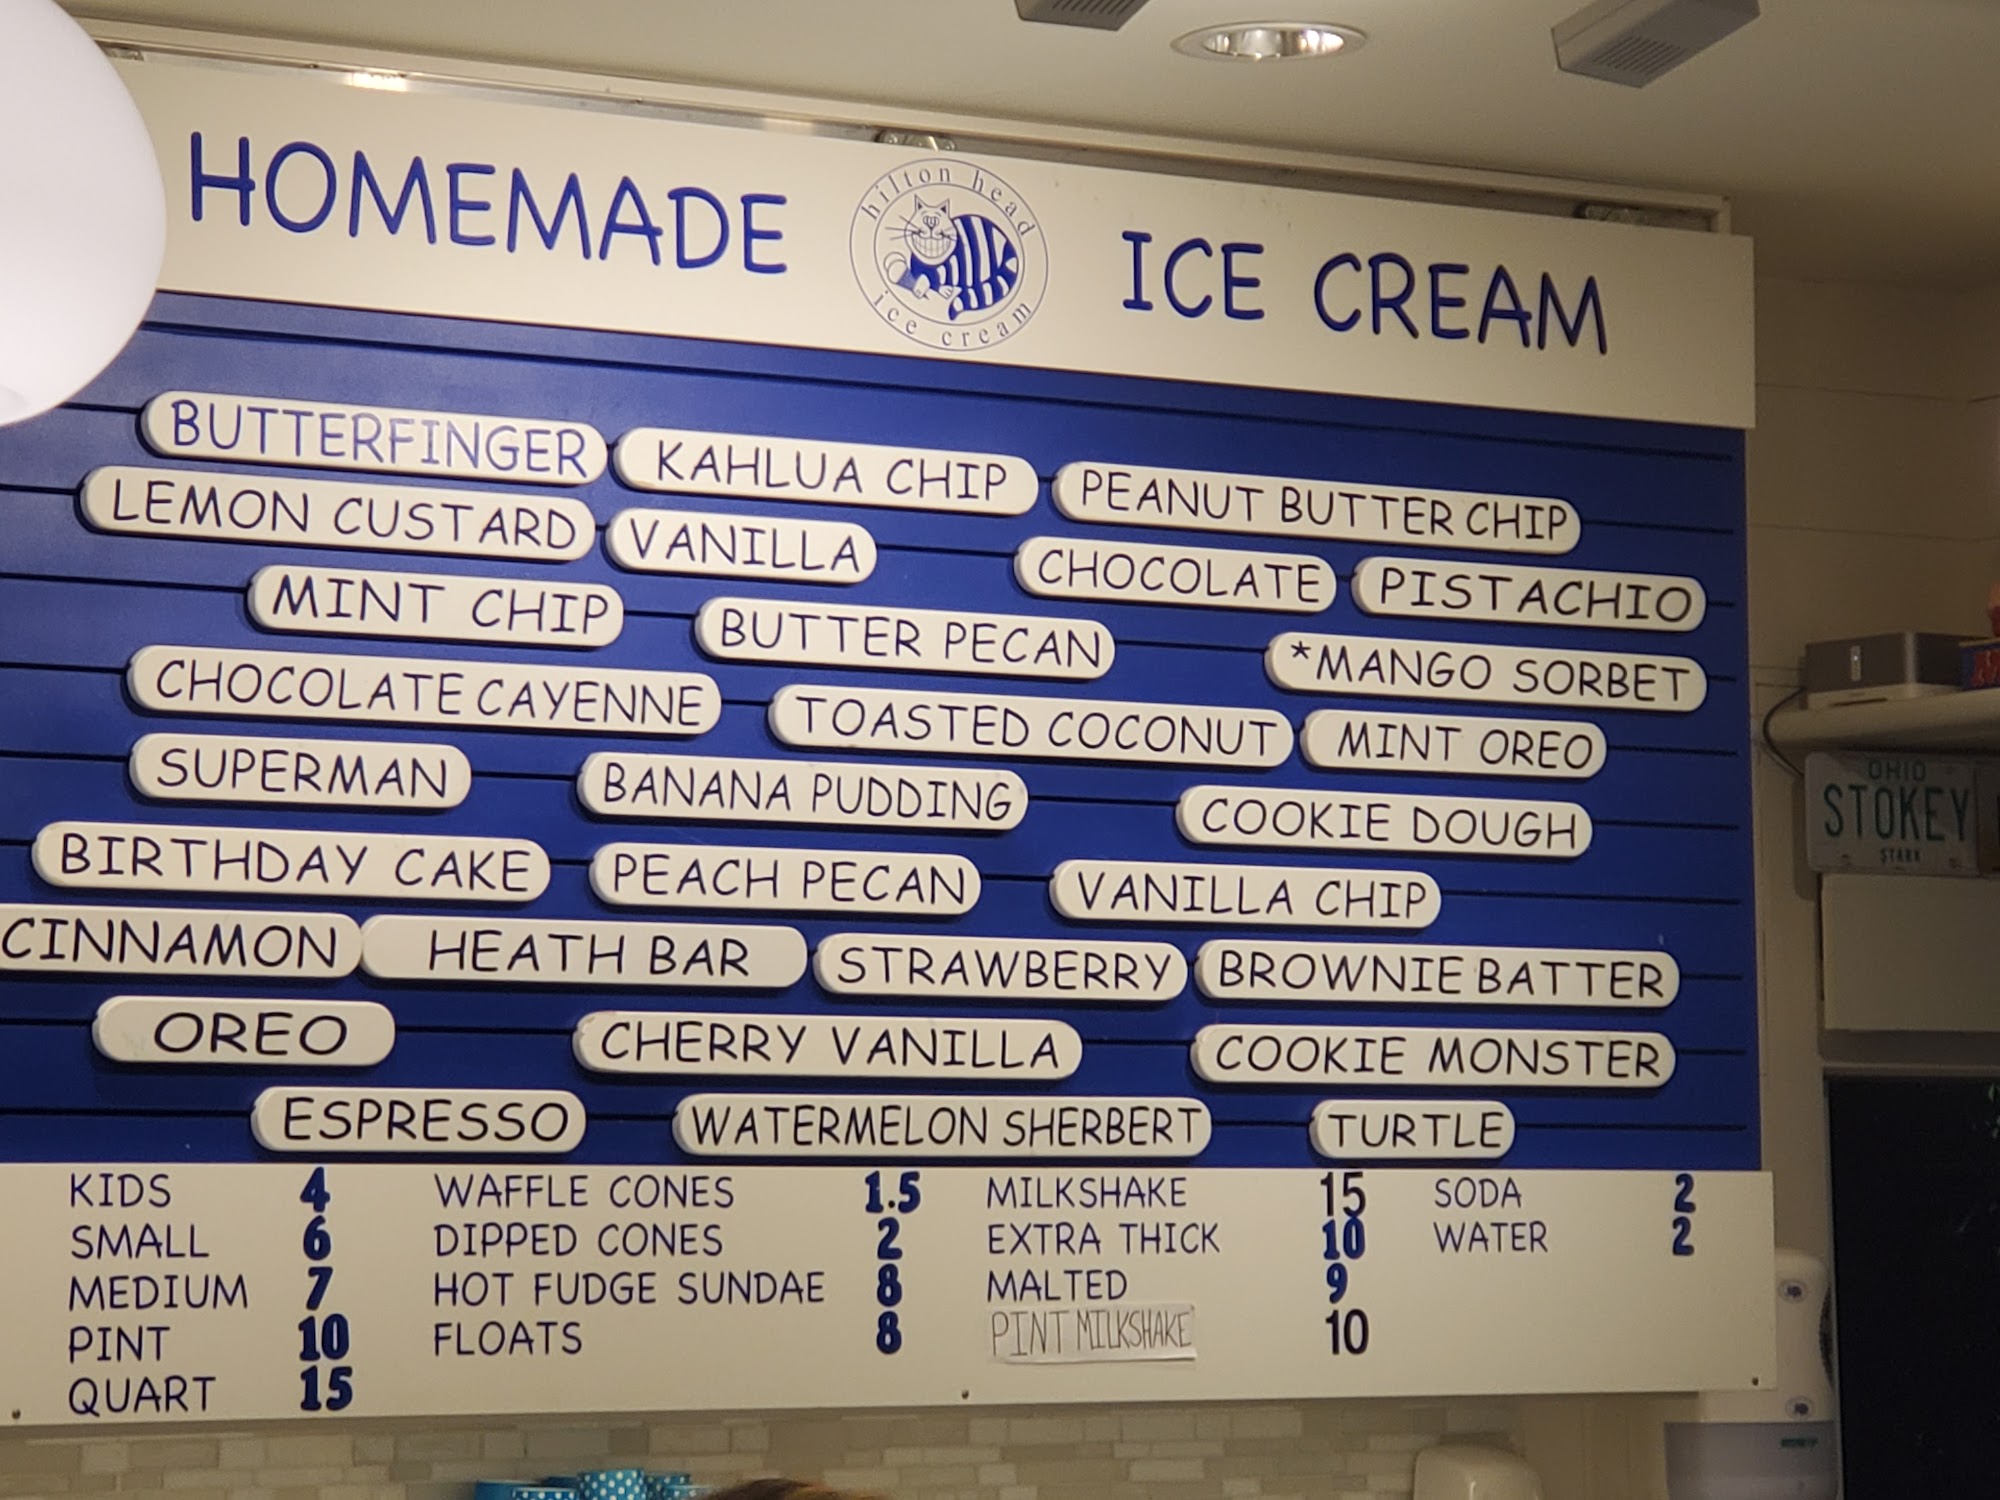 HOMEMADE hilton head ice cream ICE CREAM
BUTTERFINGER KAHLUA CHIP PEANUT BUTTER CHIP
LEMON CUSTARD VANILLA CHOCOLATE PISTACHIO
MINT CHIP BUTTER PECAN *MANGO SORBET
CHOCOLATE CAYENNE TOASTED COCONUT MINT OREO
SUPERMAN BANANA PUDDING COOKIE DOUGH
BIRTHDAY CAKE PEACH PECAN VANILLA CHIP
CINNAMON HEATH BAR STRAWBERRY BROWNIE BATTER
OREO CHERRY VANILLA COOKIE MONSTER
ESPRESSO WATERMELON SHERBERT TURTLE
KIDS 4 WAFFLE CONES 1.5 MILKSHAKE 15 SODA 2
SMALL 6 DIPPED CONES 2 EXTRA THICK 10 WATER 2
MEDIUM 7 HOT FUDGE SUNDAE 8 MALTED 9
PINT 10 FLOATS 8 PINT MILKSHAKE 10
QUART 15
OHIO
STOKEY
STARK